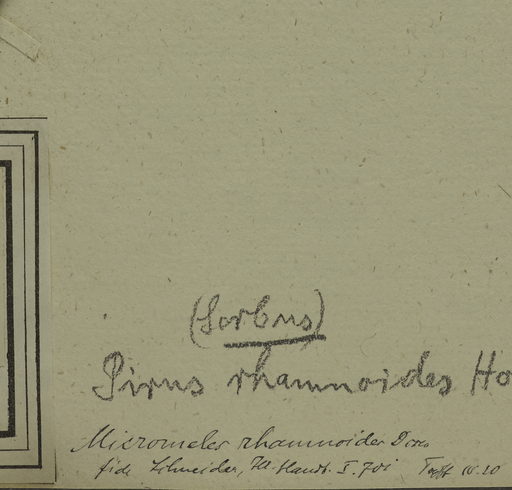 (Sorbus)
Pirus rhamnoides Ho
Micromeles rhamnoides Dcne
fide Schneider, Ill. Handb. I. 701